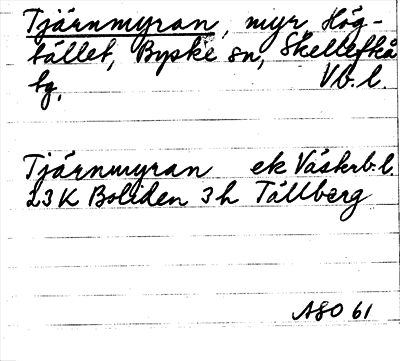 Tjärnmyran, myr, Hög-
tället, Byske sn, Skellefteå
tg. Vb. l.
Tjärnmyran ek Västerb. l.
23 K Boliden 3 h Tällberg
ASO 61